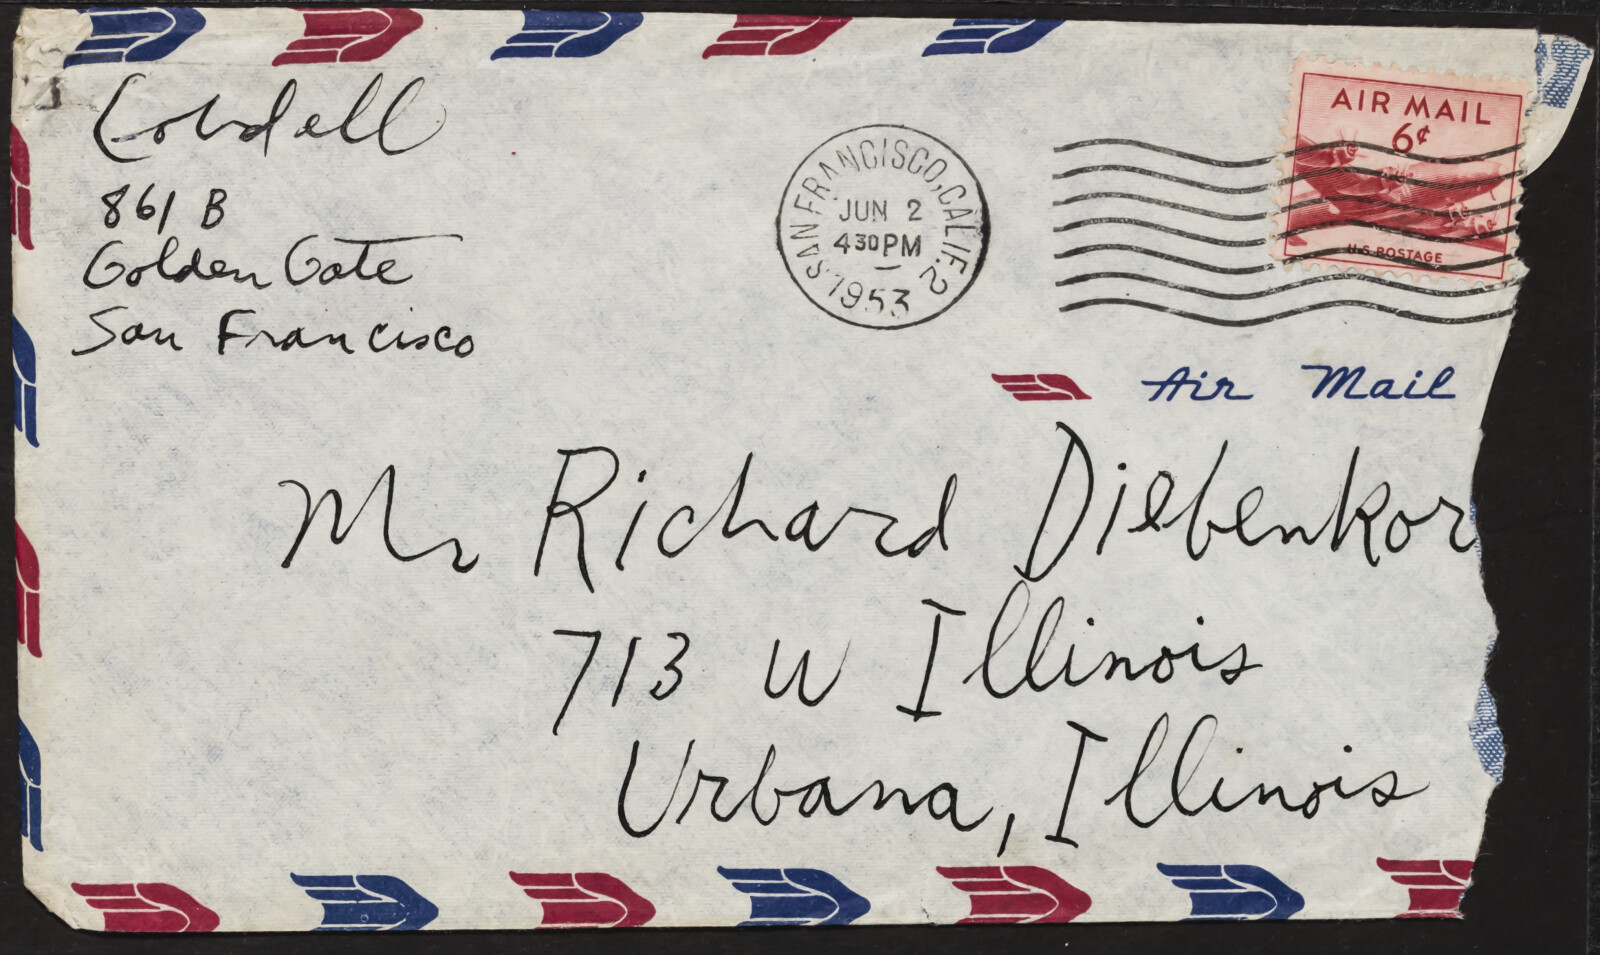 Cordell
861 B
Golden Gate
San Francisco
SAN FRANCISCO, CALIF. 2
JUN 2
4 30 PM
1953
AIR MAIL
6¢
U.S. POSTAGE
Air Mail
Mr Richard Diebenkor
713 W Illinois
Urbana, Illinois